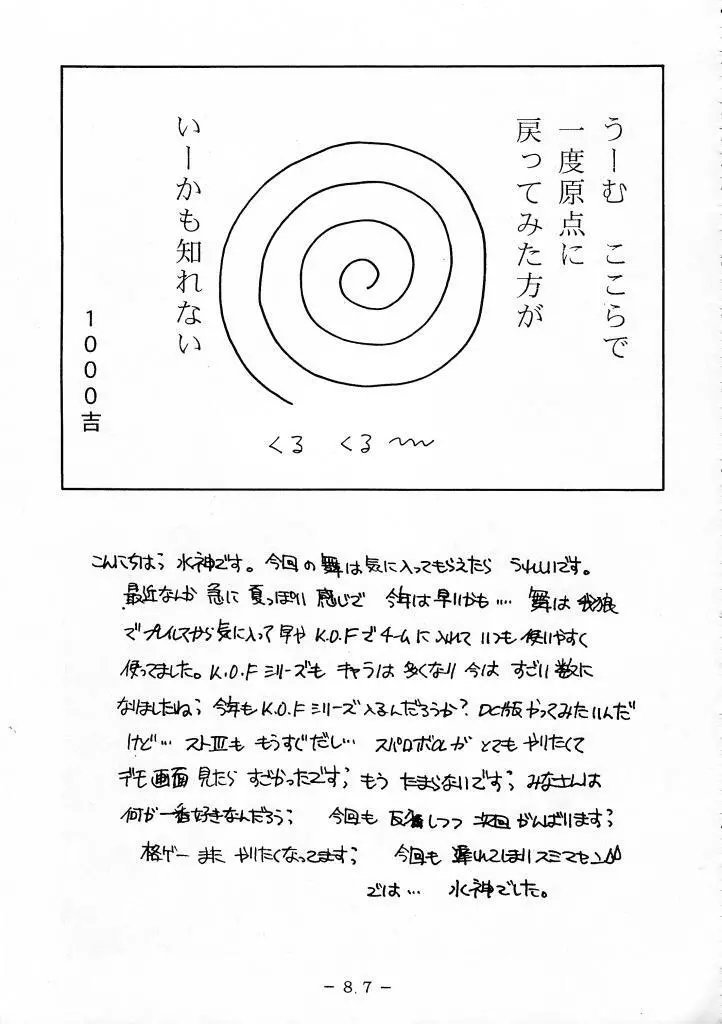 うーむ　ここらで
一度原点に
戻ってみた方が
いーかも知れない
1000吉
くる　くる〜
こんにちは、水神です。今回の舞は気に入ってもらえたら うれしいです。
最近なんか 急に 夏っぽい 感じで 今年は早いかも… 舞は 餓狼
でプレイしてから気に入って 早や K.O.Fでチームに入れて いつも 使いやすく
使ってました。K.O.Fシリーズも キャラは 多くなり 今は すごい 数に
なりましたね; 今年もK.O.Fシリーズ入るんだろうか? DC版やってみたいんだ
けど… ストⅢも もうすぐだし… スパロボαが とても やりたくて
デモ画面 見たら すごかったです; もう たまらないです; みなさんは
何が一番好きなんだろう; 今回も 反省しつつ 次回 がんばります;
格ゲー また やりたくなってます; 今回も 遅れてしまい スミマセン
では… 水神でした。
− 8.7 −